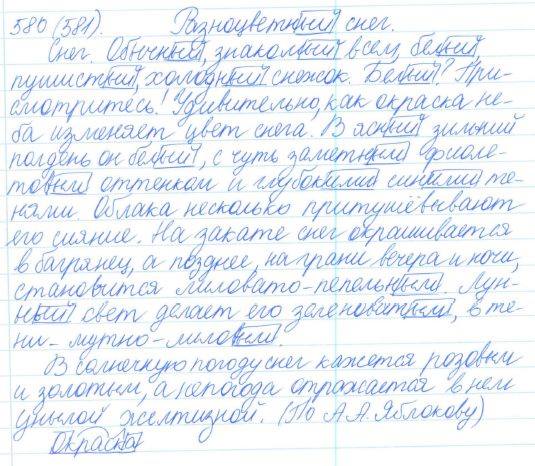 580 (581). Разноцветный снег.
Снег. Обычный, знакомый всем, белый,
пушистый, холодный снежок. Белый? При-
смотритесь! Удивительно, как окраска не-
ба изменяет цвет снега. В ясный зимний
полдень он белый, с чуть заметным фиоле-
товым оттенком и глубокими синими те-
нями. Облака несколько притушёвывают
его сияние. На закате снег окрашивается
в багрянец, а позднее, на грани вечера и ночи,
становится лиловато-пепельным. Лун-
ный свет делает его зеленоватым, в те-
ни - мутно-лиловым.
В солнечную погоду снег кажется розовым
и золотым, а непогода отражается в нем
унылой желтизной. (По А.А. Яблокову)
Окраска